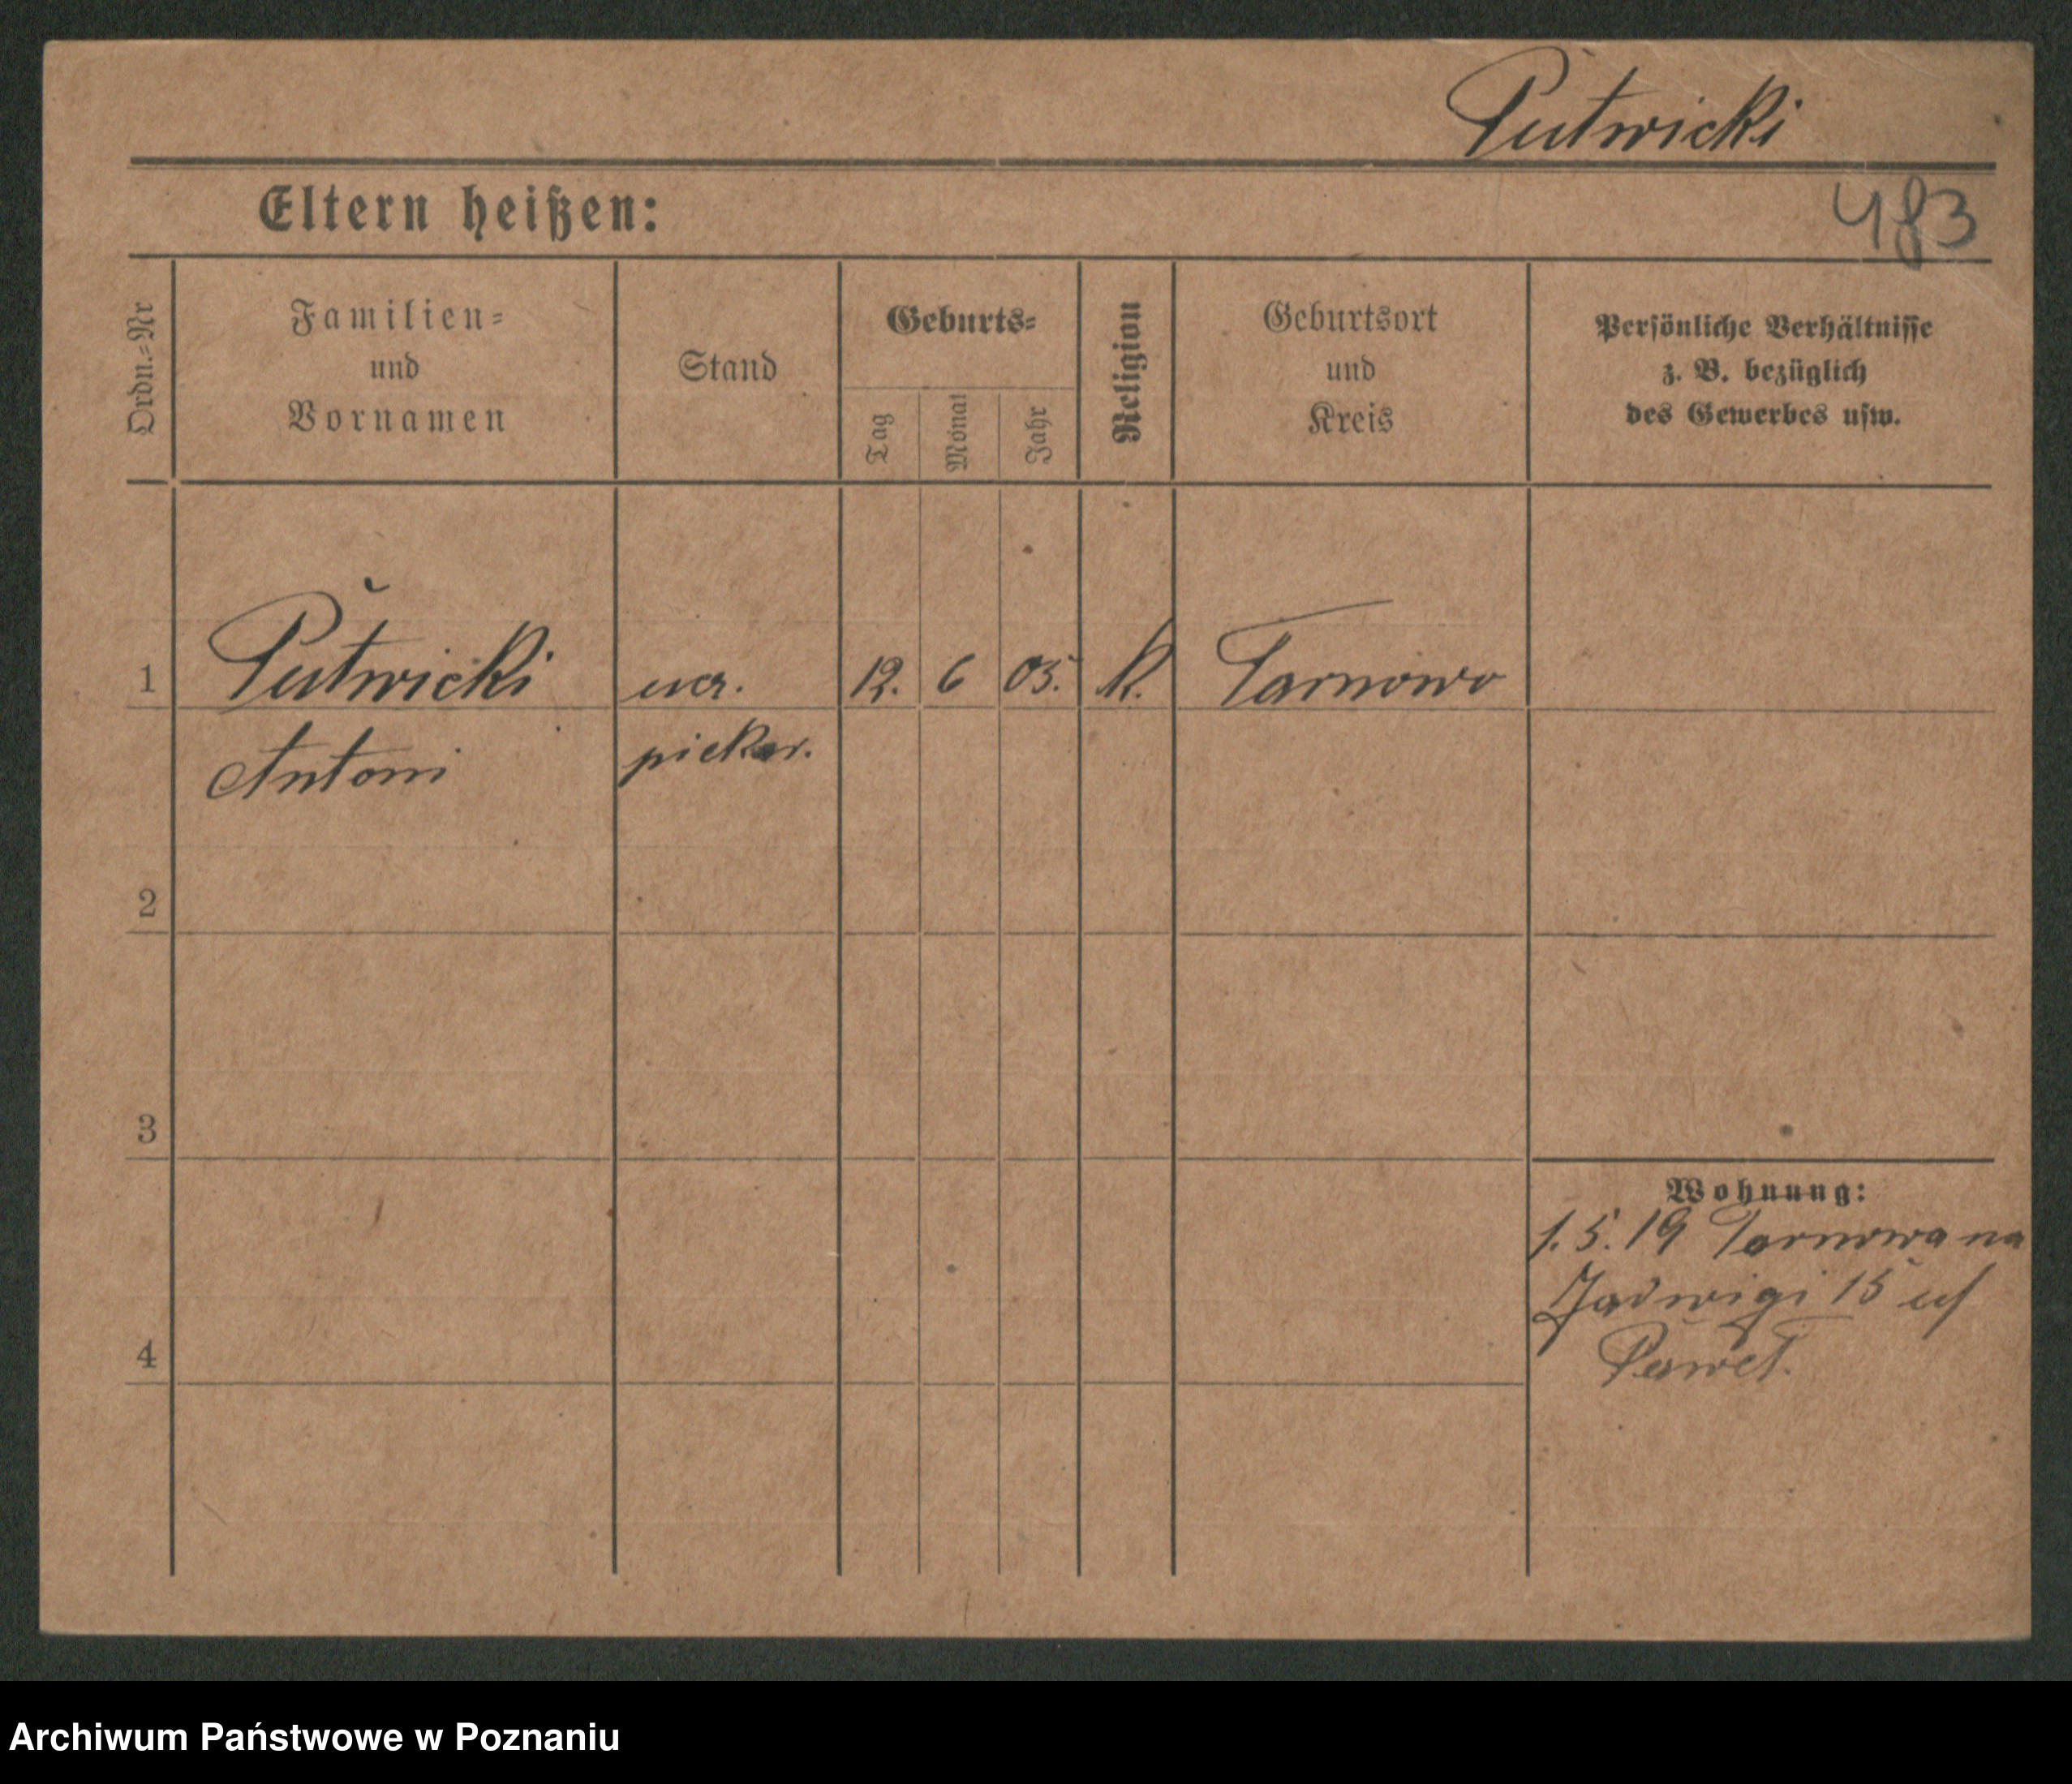 Putwicki
Eltern heißen:
483
Ordn.=Nr
Familien=
und
Vornamen
Stand
Geburts=
Tag
Monat
Jahr
Religion
Geburtsort
und
Kreis
Persönliche Verhältnisse
z. B. bezüglich
des Gewerbes usw.
1 Putwicki ucz. 12. 6 05. K. Tarnowo
Antoni piekar.
2
3
Wohnung:
1.5.19 Tarnowa na
Jadwigi 15
4
Paweł.
Archiwum Państwowe w Poznaniu